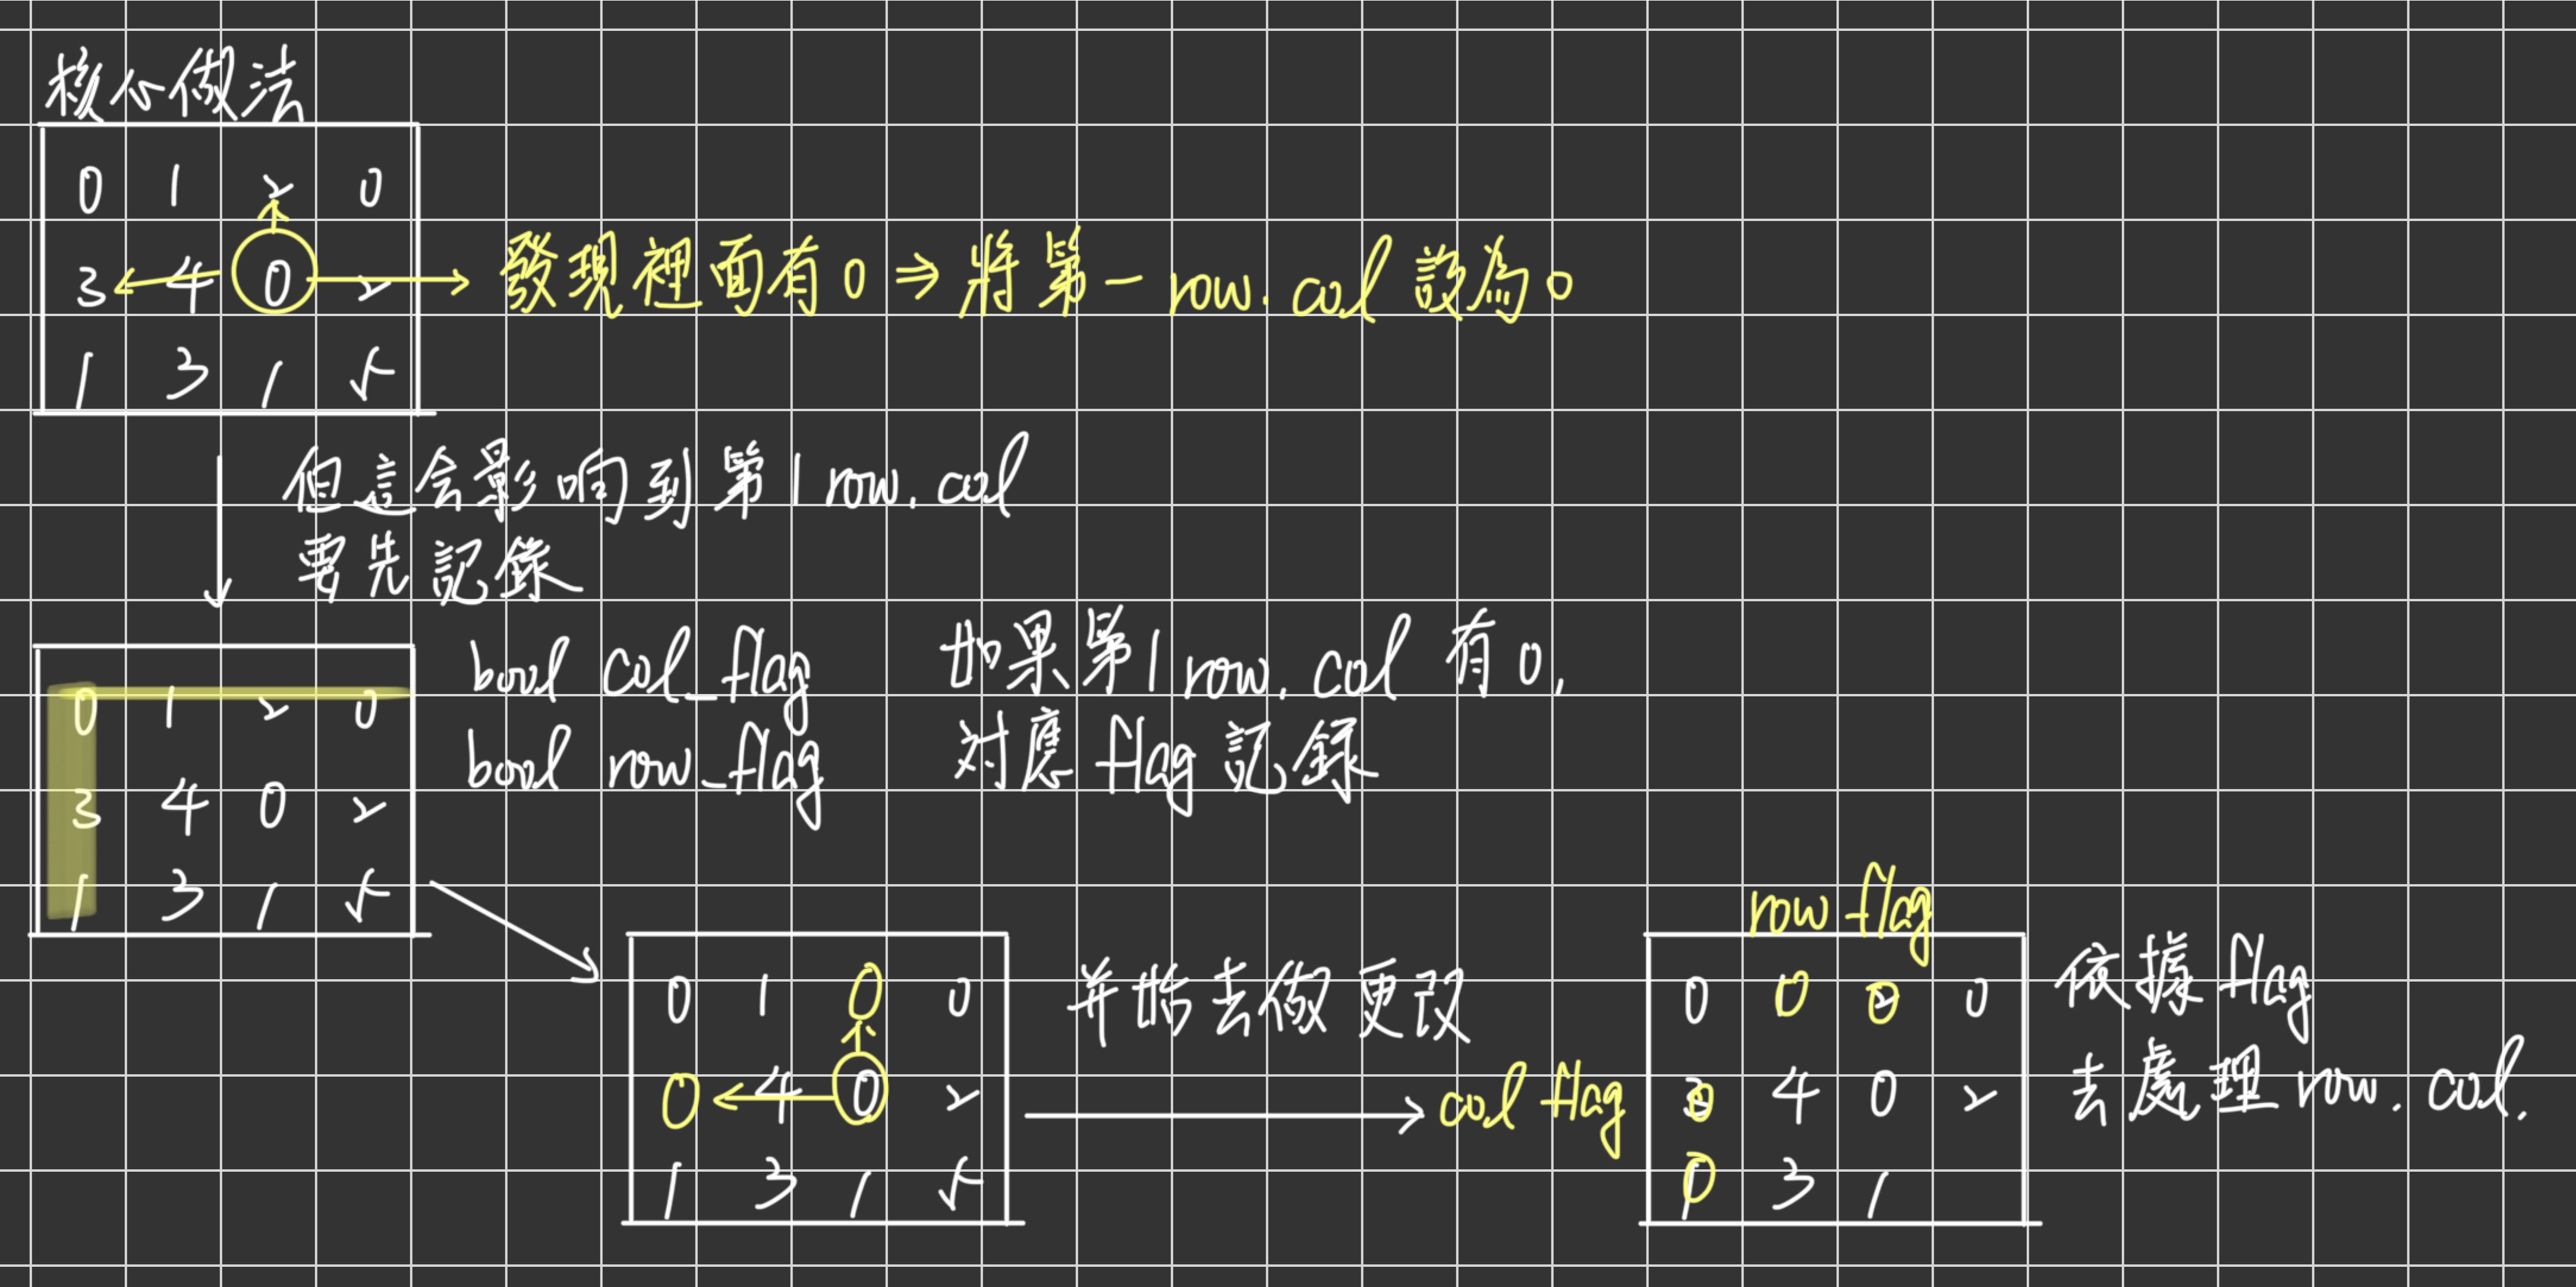 核心做法
0 1 2 0
3 4 0 2
1 3 1 5
發現裡面有0 ⇒ 將第一row.col 設為0
但這会影响到第1row.col
要先記錄
0 1 2 0
3 4 0 2
1 3 1 5
bool col_flag
bool row_flag
如果第1row.col有0,
対應flag記録
0 1 0 0
0 4 0 2
1 3 1 5
并始去做更改
row flag
col flag
0 0 0 0
0 4 0 2
0 3 1
依據flag
去處理row.col.